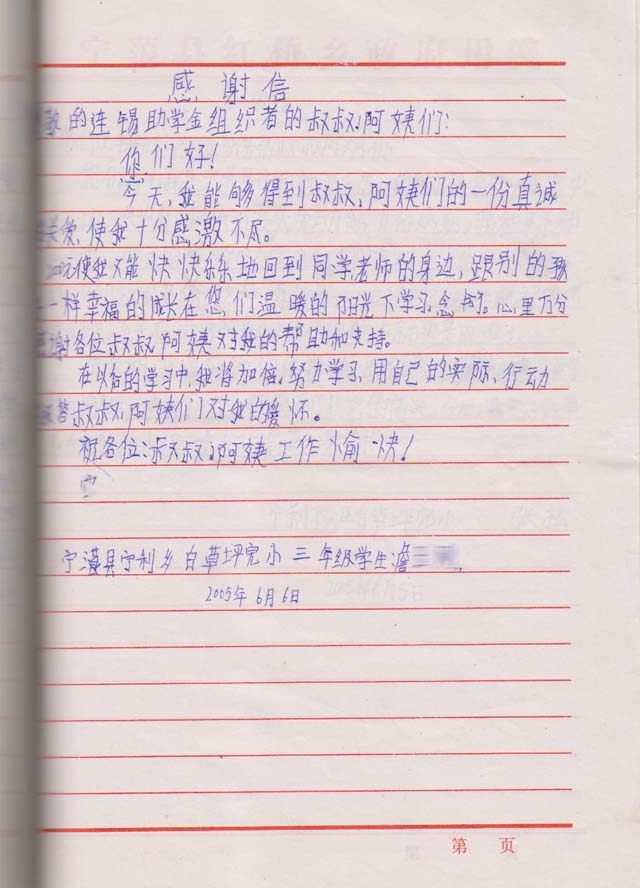 感谢信
敬的连锡助学金组织者的叔叔、阿姨们:
您们好!
今天,我能够得到叔叔、阿姨们的一份真诚
关爱,使我十分感激不尽。
元使我又能快快乐乐地回到同学老师的身边,跟别的孩
一样幸福的成长在您们温暖的阳光下学习、念书。心里万分
谢各位叔叔阿姨对我的帮助和支持。
在以后的学习中,我将加倍努力学习,用自己的实际行动
报答叔叔、阿姨们对我的关怀。
祝各位:叔叔、阿姨工作愉快!
宁
宁蒗县宁利乡白草坪完小三年级学生
2005年6月6日
第 页